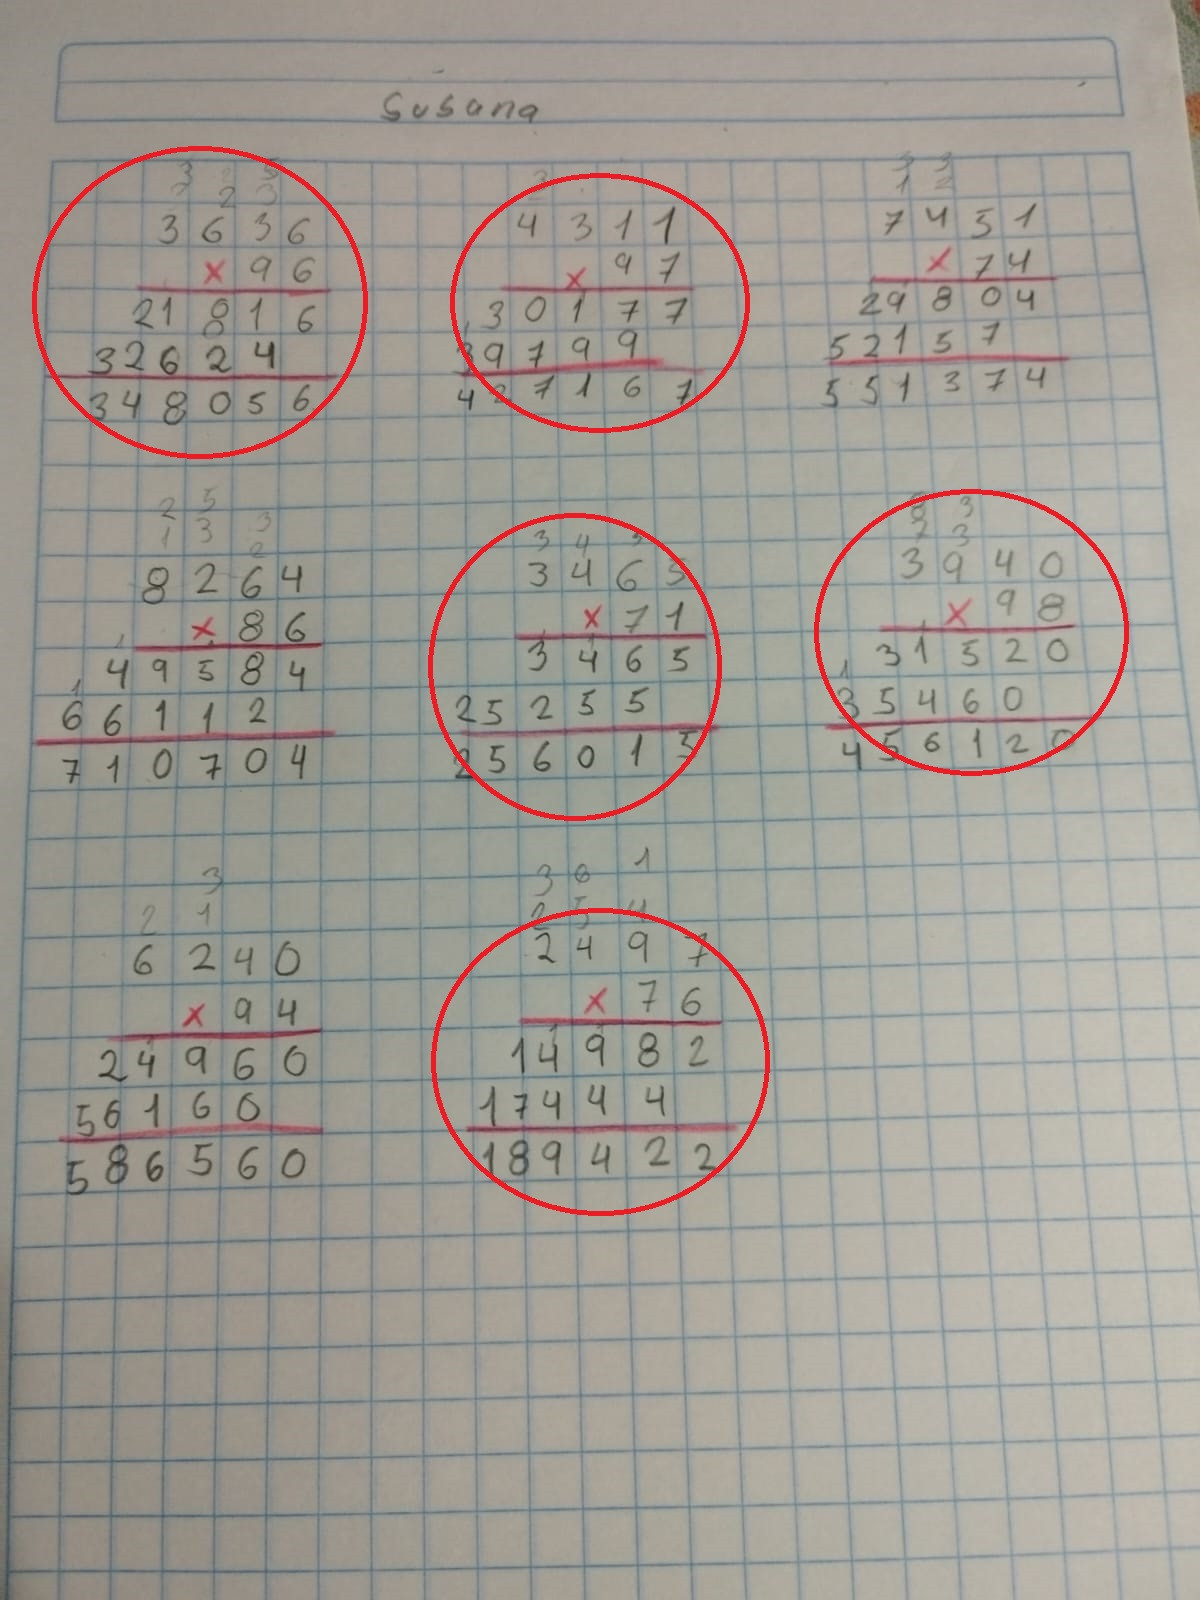 Susana
3636
x 96
21816
32624
348056
4311
x 97
30177
39799
427167
7451
x 74
29804
52157
551374
8264
x 86
49584
66112
710704
3465
x 71
3465
25255
256015
3940
x 98
31520
35460
456120
6240
x 94
24960
56160
586560
2497
x 76
14982
17444
189422